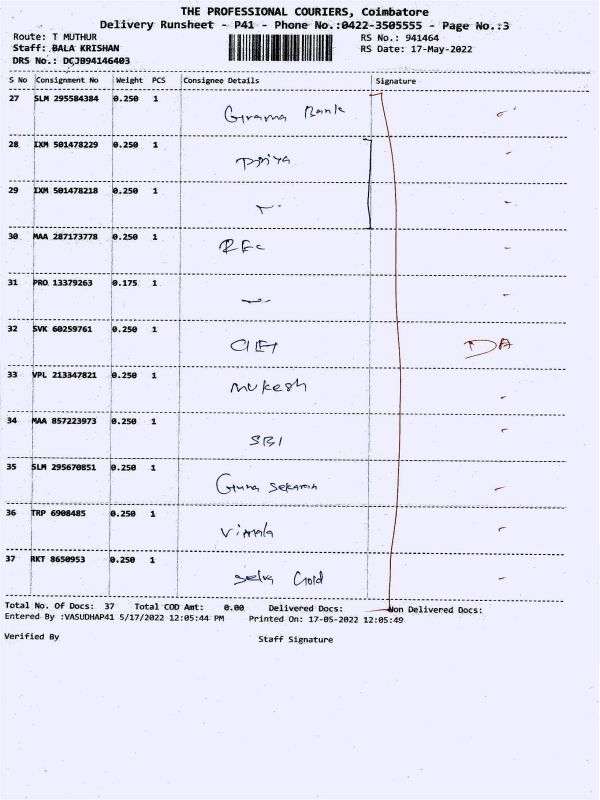 THE PROFESSIONAL COURIERS, Coimbatore
Delivery Runsheet - P41 - Phone No.:0422-3505555 - Page No.:3
Route: T MUTHUR RS No.: 941464
Staff: BALA KRISHAN RS Date: 17-May-2022
DRS No.: DCJB94146403
S No Consignment No Weight PCS Consignee Details Signature
27 SLM 295584384 0.250 1 Grama Bank
28 IXM 501478229 0.250 1 Priya
29 IXM 501478218 0.250 1
30 MAA 287173778 0.250 1 REC
31 PRO 13379263 0.175 1
32 SVK 60259761 0.250 1 DA
33 VPL 213347821 0.250 1 Mukesh
34 MAA 857223973 0.250 1 SBI
35 SLM 295670851 0.250 1 Guna Sekaran
36 TRP 6908485 0.250 1 Vimala
37 RKT 8650953 0.250 1 Selva Gold
Total No. Of Docs: 37 Total COD Amt: 0.00 Delivered Docs: Non Delivered Docs:
Entered By :VASUDHAP41 5/17/2022 12:05:44 PM Printed On: 17-05-2022 12:05:49
Verified By Staff Signature